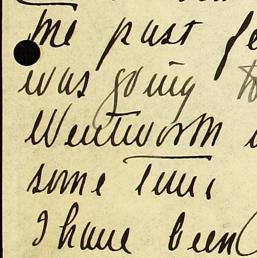 the past
was going to
Wentworth
some time
I have been